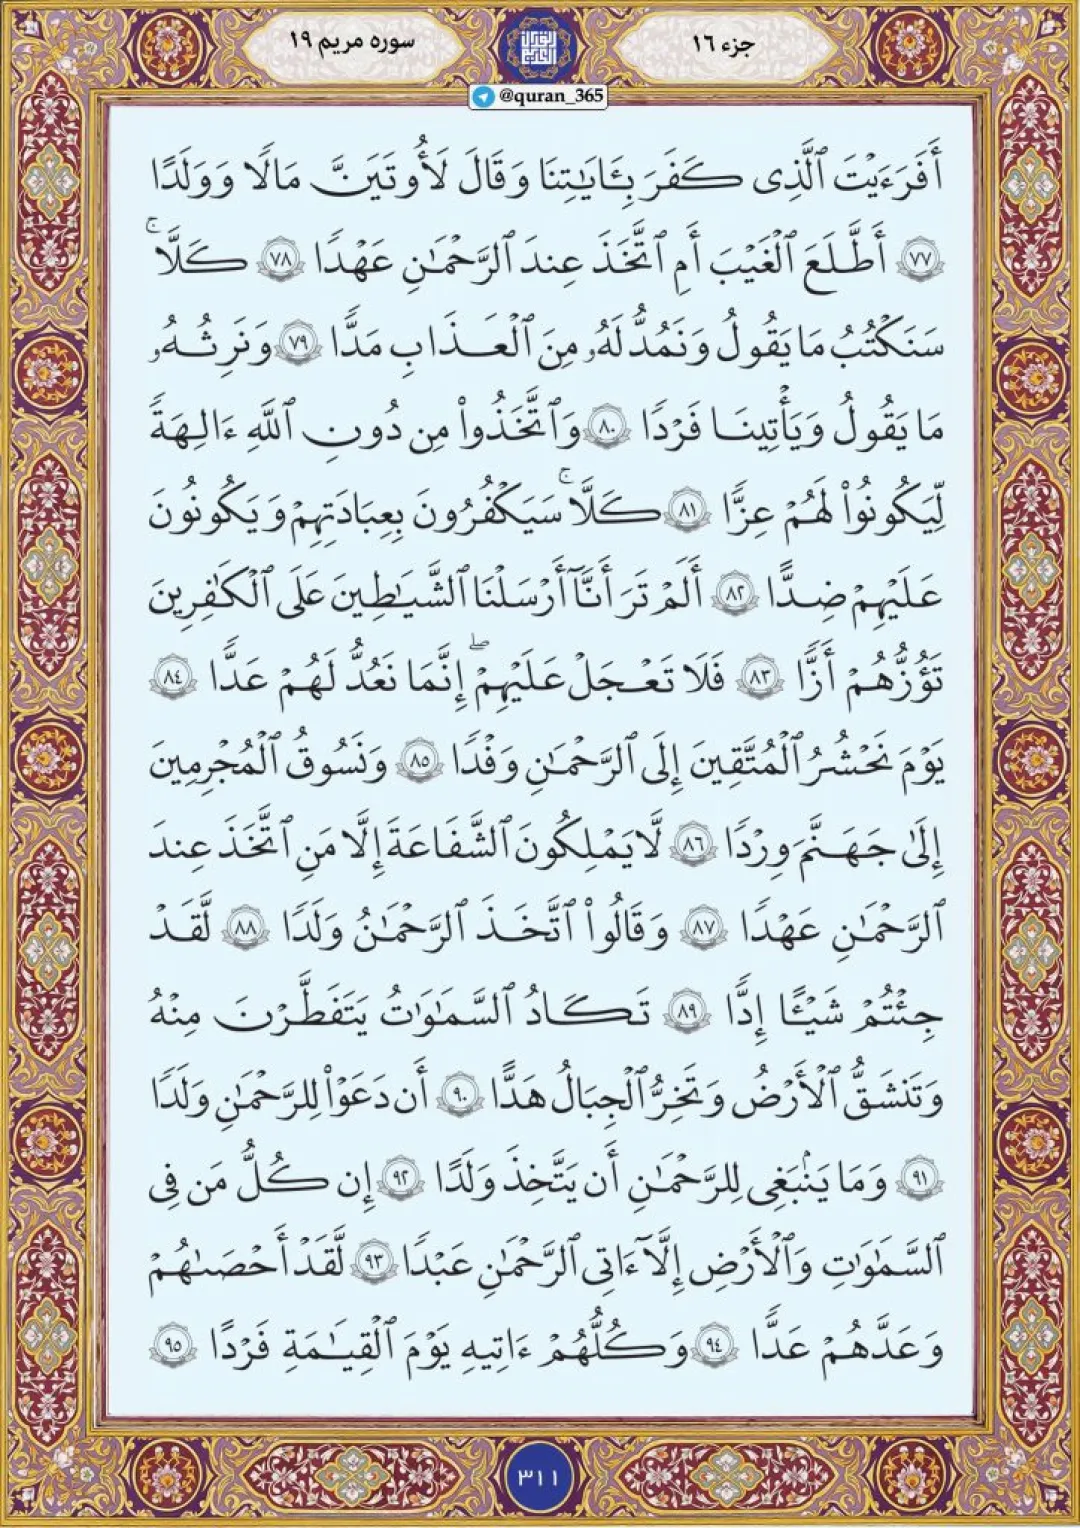 جزء ١٦
سوره مريم ١٩
@quran_365
أَفَرَءَيْتَ ٱلَّذِى كَفَرَ بِـَٔايَـٰتِنَا وَقَالَ لَأُوتَيَنَّ مَالًا وَوَلَدًا
٧٧ أَطَّلَعَ ٱلْغَيْبَ أَمِ ٱتَّخَذَ عِندَ ٱلرَّحْمَـٰنِ عَهْدًا ٧٨ كَلَّا ۚ
سَنَكْتُبُ مَا يَقُولُ وَنَمُدُّ لَهُۥ مِنَ ٱلْعَذَابِ مَدًّا ٧٩ وَنَرِثُهُۥ
مَا يَقُولُ وَيَأْتِينَا فَرْدًا ٨٠ وَٱتَّخَذُوا۟ مِن دُونِ ٱللَّهِ ءَالِهَةً
لِّيَكُونُوا۟ لَهُمْ عِزًّا ٨١ كَلَّا ۚ سَيَكْفُرُونَ بِعِبَادَتِهِمْ وَيَكُونُونَ
عَلَيْهِمْ ضِدًّا ٨٢ أَلَمْ تَرَ أَنَّآ أَرْسَلْنَا ٱلشَّيَـٰطِينَ عَلَى ٱلْكَـٰفِرِينَ
تَؤُزُّهُمْ أَزًّا ٨٣ فَلَا تَعْجَلْ عَلَيْهِمْ ۖ إِنَّمَا نَعُدُّ لَهُمْ عَدًّا ٨٤
يَوْمَ نَحْشُرُ ٱلْمُتَّقِينَ إِلَى ٱلرَّحْمَـٰنِ وَفْدًا ٨٥ وَنَسُوقُ ٱلْمُجْرِمِينَ
إِلَىٰ جَهَنَّمَ وِرْدًا ٨٦ لَّا يَمْلِكُونَ ٱلشَّفَاعَةَ إِلَّا مَنِ ٱتَّخَذَ عِندَ
ٱلرَّحْمَـٰنِ عَهْدًا ٨٧ وَقَالُوا۟ ٱتَّخَذَ ٱلرَّحْمَـٰنُ وَلَدًا ٨٨ لَّقَدْ
جِئْتُمْ شَيْـًٔا إِدًّا ٨٩ تَكَادُ ٱلسَّمَـٰوَٰتُ يَتَفَطَّرْنَ مِنْهُ
وَتَنشَقُّ ٱلْأَرْضُ وَتَخِرُّ ٱلْجِبَالُ هَدًّا ٩٠ أَن دَعَوْا۟ لِلرَّحْمَـٰنِ وَلَدًا
٩١ وَمَا يَنۢبَغِى لِلرَّحْمَـٰنِ أَن يَتَّخِذَ وَلَدًا ٩٢ إِن كُلُّ مَن فِى
ٱلسَّمَـٰوَٰتِ وَٱلْأَرْضِ إِلَّآ ءَاتِى ٱلرَّحْمَـٰنِ عَبْدًا ٩٣ لَّقَدْ أَحْصَىٰهُمْ
وَعَدَّهُمْ عَدًّا ٩٤ وَكُلُّهُمْ ءَاتِيهِ يَوْمَ ٱلْقِيَـٰمَةِ فَرْدًا ٩٥
٣١١